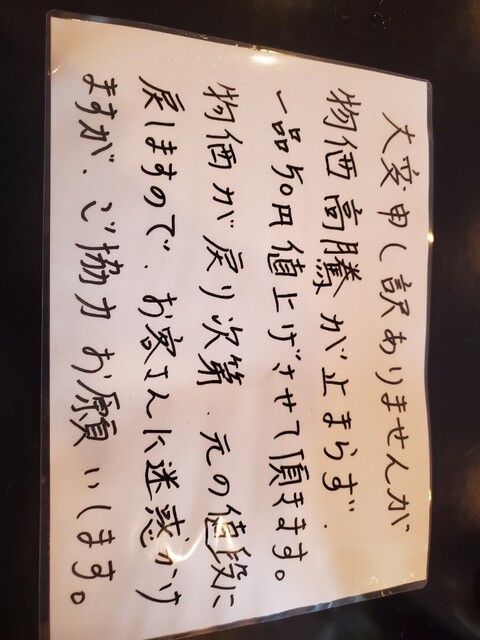 大変申し訳ありませんが
物価高騰が止まらず、
一品50円値上げさせて頂きます。
物価が戻り次第、元の値段に
戻しますので、お客さんに迷惑かけ
ますが、ご協力お願いします。